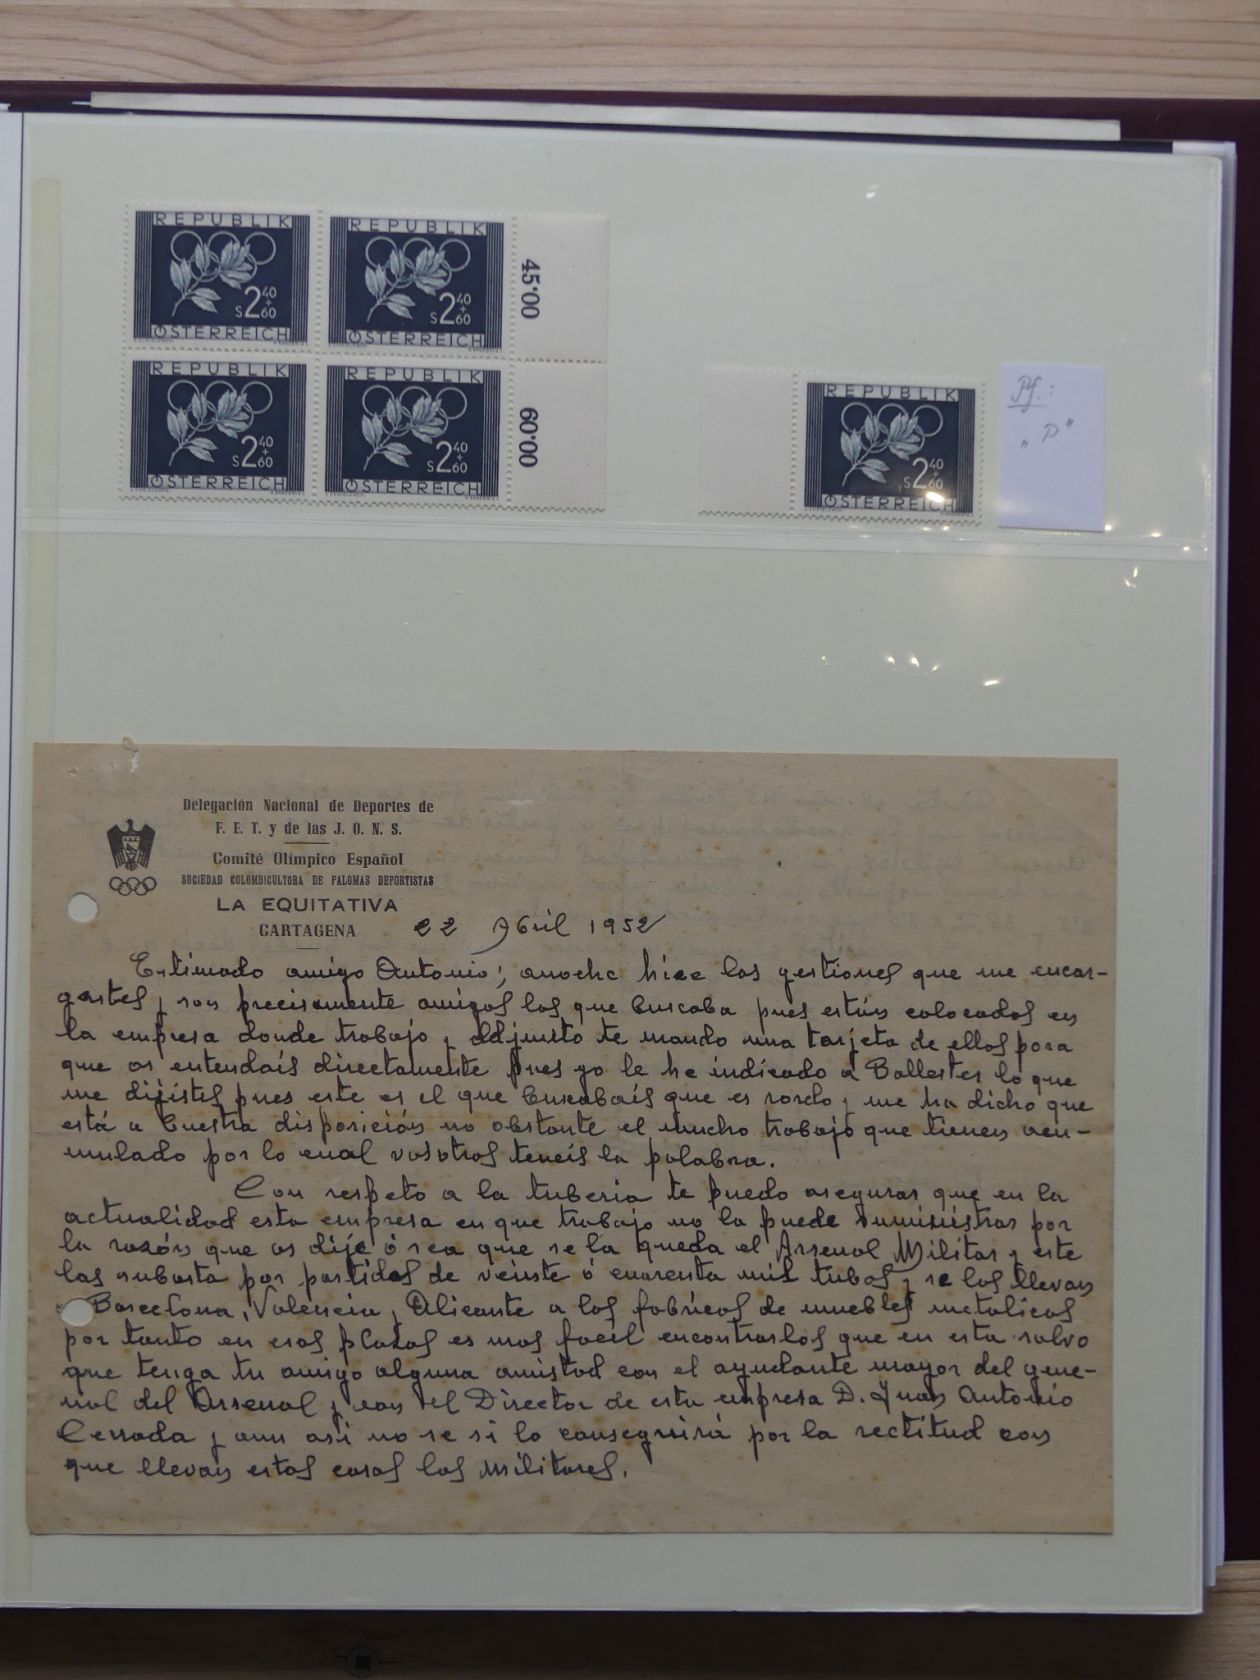 REPUBLIK
S 2 40 + 60
ÖSTERREICH
REPUBLIK
S 2 40 + 60
ÖSTERREICH
45'00
REPUBLIK
S 2 40 + 60
ÖSTERREICH
REPUBLIK
S 2 40 + 60
ÖSTERREICH
60'00
REPUBLIK
S 2 40 + 60
ÖSTERREICH
Pf.:
"P"
Delegación Nacional de Deportes de
F. E. T. y de las J. O. N. S.
Comité Olímpico Español
SOCIEDAD COLOMBICULTORA DE PALOMAS DEPORTISTAS
LA EQUITATIVA
CARTAGENA 22 Abril 1952
Estimado amigo Antonio; anoche hice las gestiones que me encar-
gastes y son precisamente amigos los que buscaba pues están colocados en
la empresa donde trabajo y adjunto te mando una tarjeta de ellos para
que os entendais directamente pues yo le he indicado a Ballester lo que
me dijistes pues este es el que buscabais que es sordo y me ha dicho que
está a buestra disposición no obstante el mucho trabajo que tienen acu-
mulado por lo cual vosotros teneis la palabra.
Con respeto a la tuberia te puedo asegurar que en la
actualidad esta empresa en que trabajo no la puede suministrar por
la razón que os dije ó sea que se la queda el Arsenal Militar y este
las subasta por partidas de veinte ó cuarenta mil tubos y se los llevan
a Barcelona, Valencia y Alicante a las fabricas de muebles metalicos
por tanto en esas plazas es mas facil encontrarlos que en esta salvo
que tenga tu amigo alguna amistad con el ayudante mayor del gene-
ral del Arsenal y con el Director de esta empresa D. Juan Antonio
Cerrada y aun asi no se si lo conseguirá por la rectitud con
que llevan estas cosas los Militares.